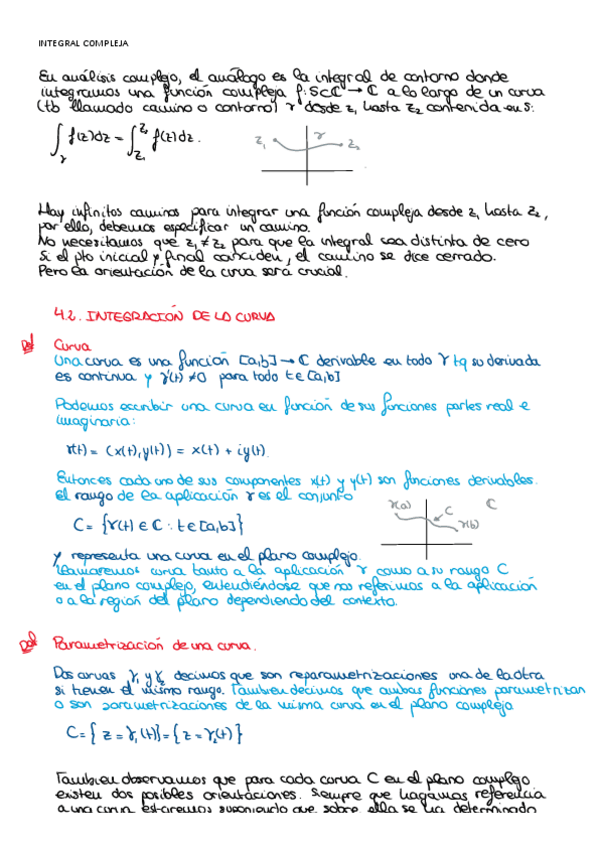 INTEGRAL COMPLEJA
En análisis complejo, el análogo es la integral de contorno donde
integramos una función compleja f: S⊂ℂ → ℂ a lo largo de un curva
(tb llamado camino o contorno) γ desde z₁ hasta z₂ contenida en S:
∫_γ f(z)dz = ∫_{z₁}^{z₂} f(z)dz.
z₁ γ z₂
Hay infinitos caminos para integrar una función compleja desde z₁ hasta z₂,
por ello, debemos especificar un camino.
No necesitamos que z₁ ≠ z₂ para que la integral sea distinta de cero
Si el pto inicial y final coinciden, el camino se dice cerrado.
Pero la orientación de la curva será crucial.
4.2. INTEGRACIÓN DE LA CURVA
Def Curva
Una curva es una función [a,b] → ℂ derivable en todo γ tq su derivada
es continua y γ'(t) ≠ 0 para todo t ∈ [a,b]
Podemos escribir una curva en función de sus funciones partes real e
imaginaria:
γ(t) = (x(t), y(t)) = x(t) + iy(t).
Entonces cada uno de sus componentes x(t) y y(t) son funciones derivables.
El rango de la aplicación γ es el conjunto
γ(a) C ℂ
γ(b)
C = {γ(t) ∈ ℂ : t ∈ [a,b]}
y representa una curva en el plano complejo.
Llamaremos curva tanto a la aplicación γ como a su rango C
en el plano complejo, entendiéndose que nos referimos a la aplicación
o a la región del plano dependiendo del contexto.
Def Parametrización de una curva.
Dos curvas γ₁ y γ₂ decimos que son reparametrizaciones una de la otra
si tienen el mismo rango. Tambien decimos que ambas funciones parametrizan
o son parametrizaciones de la misma curva en el plano complejo
C = { z = γ₁(t)} = { z = γ₂(t) }
Tambien observamos que para cada curva C en el plano complejo
existen dos posibles orientaciones. Siempre que hagamos referencia
a una curva estaremos suponiendo que sobre ella se ha determinado